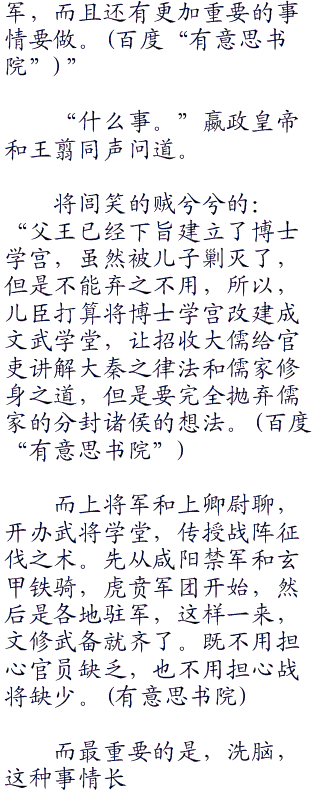 军，而且还有更加重要的事
情要做。(百度“有意思书
院”)”
“什么事。”嬴政皇帝
和王翦同声问道。
将闾笑的贼兮兮的：
“父王已经下旨建立了博士
学宫，虽然被儿子剿灭了，
但是不能弃之不用，所以，
儿臣打算将博士学宫改建成
文武学堂，让招收大儒给官
吏讲解大秦之律法和儒家修
身之道，但是要完全抛弃儒
家的分封诸侯的想法。(百度
“有意思书院”)
而上将军和上卿尉聊，
开办武将学堂，传授战阵征
伐之术。先从咸阳禁军和玄
甲铁骑，虎贲军团开始，然
后是各地驻军，这样一来，
文修武备就齐了。既不用担
心官员缺乏，也不用担心战
将缺少。(有意思书院)
而最重要的是，洗脑，
这种事情长